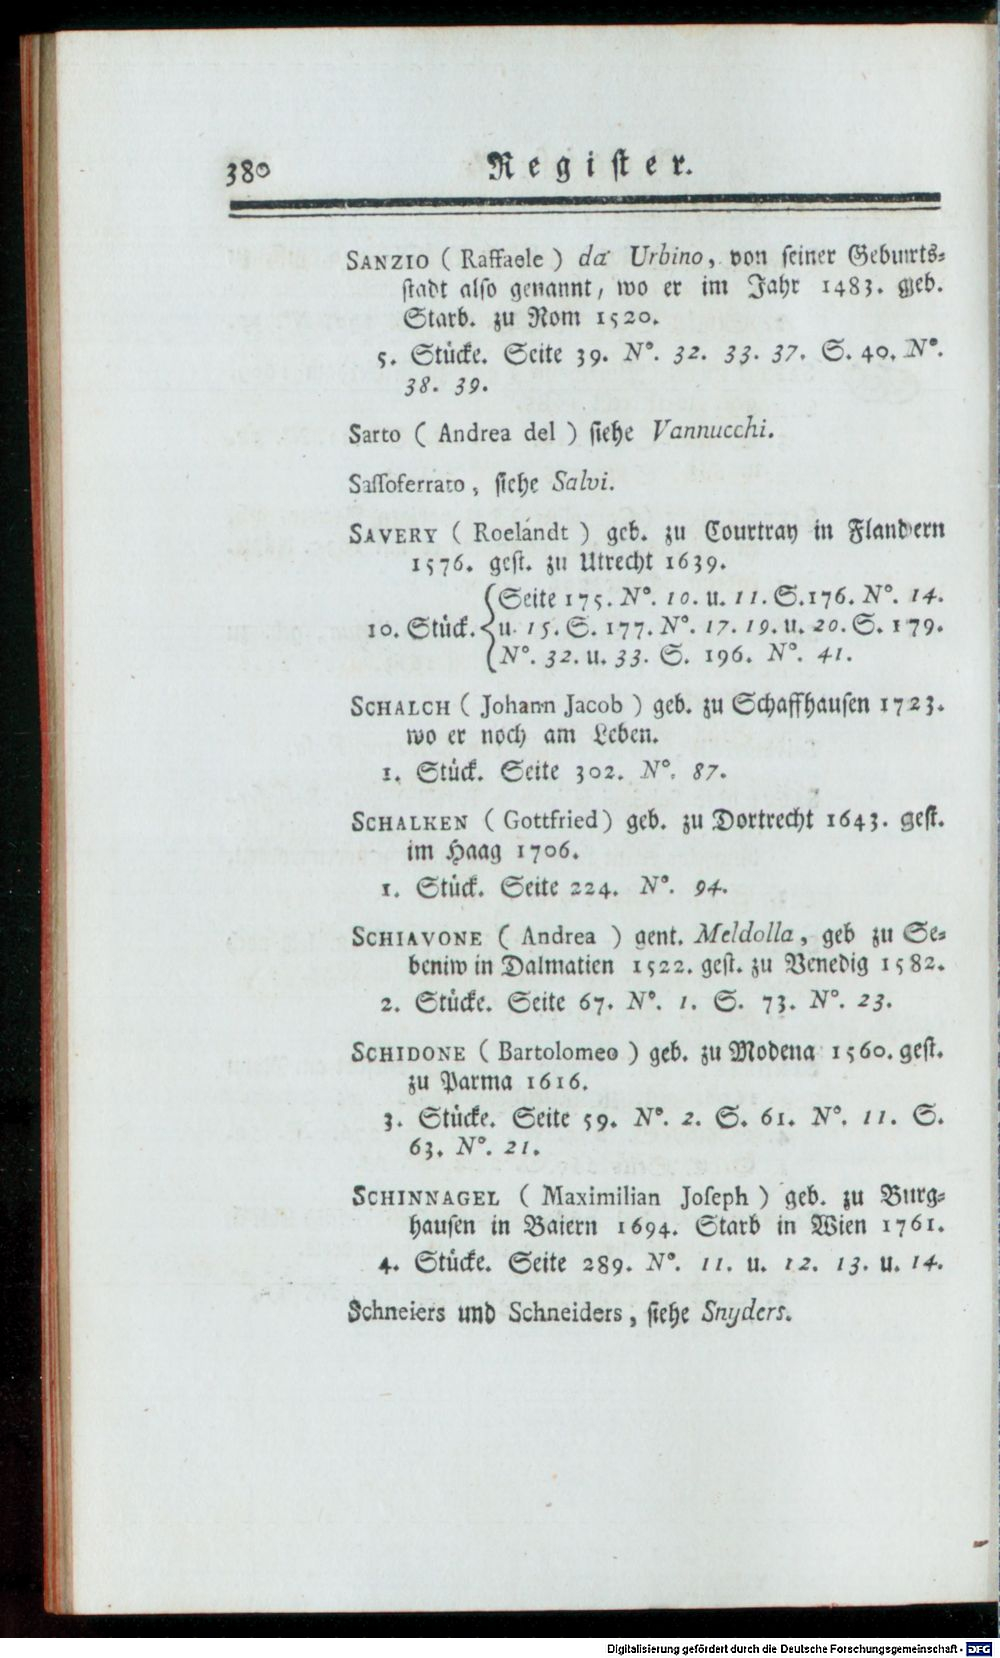 380 Regiſter.
SANZIO ( Raffaele ) da Urbino, von ſeiner Geburts⸗
ſtadt alſo genannt, wo er im Jahr 1483. geb.
Starb. zu Rom 1520.
5. Stücke. Seite 39. N°. 32. 33. 37. S. 40. N°.
38. 39.
Sarto ( Andrea del ) ſiehe Vannucchi.
Saſſoferrato, ſiehe Salvi.
SAVERY ( Roelandt ) geb. zu Courtray in Flandern
1576. geſt. zu Utrecht 1639.
Seite 175. N°. 10. u. 11. S. 176. N°. 14.
10. Stück. u. 15. S. 177. N°. 17. 19. u. 20. S. 179.
N°. 32. u. 33. S. 196. N°. 41.
SCHALCH ( Johann Jacob ) geb. zu Schaffhauſen 1723.
wo er noch am Leben.
1. Stück. Seite 302. N°. 87.
SCHALKEN ( Gottfried ) geb. zu Dortrecht 1643. geſt.
im Haag 1706.
1. Stück. Seite 224. N°. 94.
SCHIAVONE ( Andrea ) gent. Meldolla, geb zu Se⸗
beniw in Dalmatien 1522. geſt. zu Venedig 1582.
2. Stücke. Seite 67. N°. 1. S. 73. N°. 23.
SCHIDONE ( Bartolomeo ) geb. zu Modena 1560. geſt.
zu Parma 1616.
3. Stücke. Seite 59. N°. 2. S. 61. N°. 11. S.
63. N°. 21.
SCHINNAGEL ( Maximilian Joſeph ) geb. zu Burg⸗
hauſen in Baiern 1694. Starb in Wien 1761.
4. Stücke. Seite 289. N°. 11. u. 12. 13. u. 14.
Schneiers und Schneiders, ſiehe Snyders.
Digitalisierung gefördert durch die Deutsche Forschungsgemeinschaft - DFG